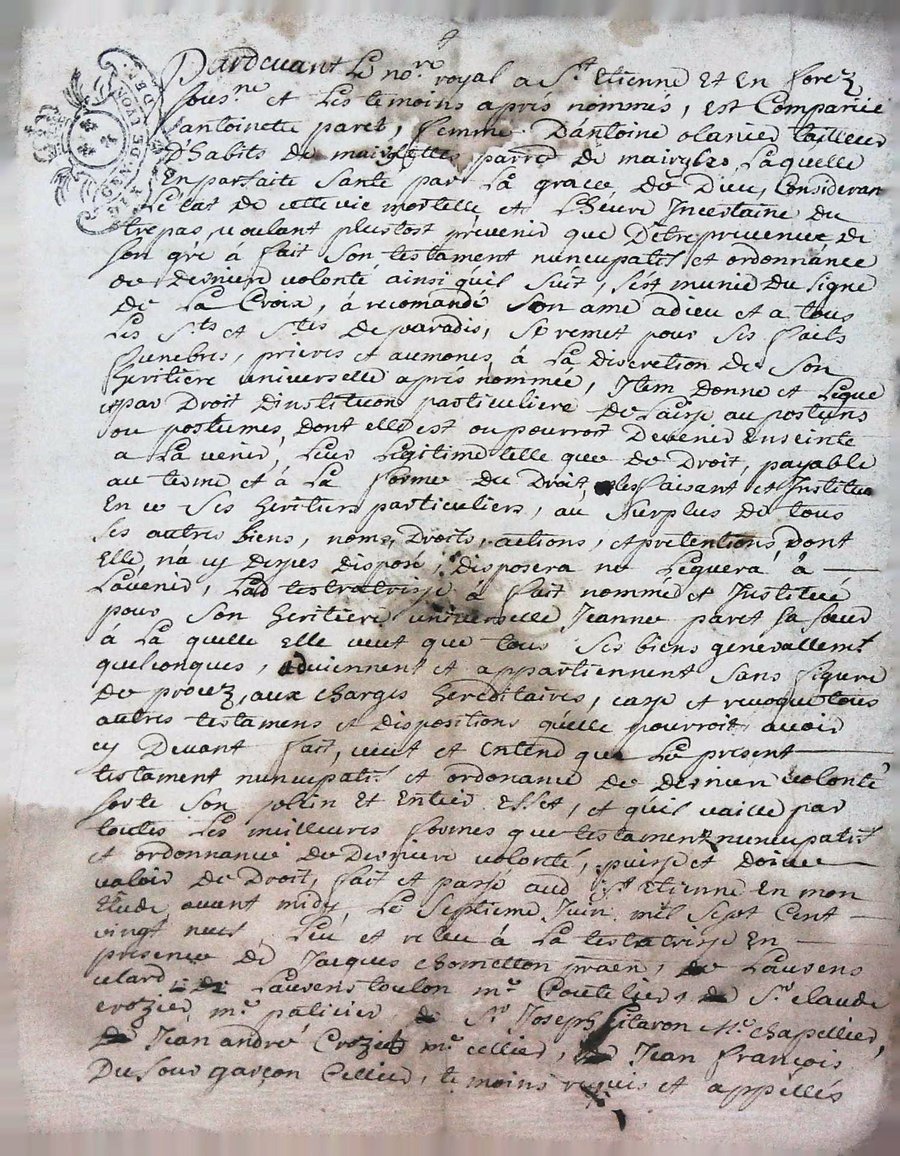 Pardevant Le no.re royal a S.t Etienne Et En forez
sous.ne et Les temoins aprés nommés, est Comparüe
antoinette paret, femme D'antoine olanier tailleur
D'habits de parr.e de Laquelle
En parfaite Santé par La grace de Dieu, Consideran
L'etat de cette vie mortelle et L'heure Incertaine du
trepas, voulant plustost prevenir que D'etre prevenue de
son gré à fait Son testament nuncupatif et ordonnance
de derniere volonté ainsi qu'il Suit, S'est munie du Signe
de La Croix, à recomandé Son ame adieu et a tous
Les S.ts et S.tes de paradis, Se remet pour Ses fraits
funebres, prieres et aumones, à La discretion de Son
heritiere universelle aprés nommée, Item donne et Legue
et par Droit D'institution particuliere De Laisse au postume
ou postumes, dont elle est ou pourroit Devenir Enseinte
a La venir, Leur Legitime telle que de Droit, payable
au terme et à La forme du Droit, les faisant et Instituë
En ce Ses heritiers particuliers, au Surplus de tous
Ses autres biens, noms, Droits, actions, et pretentions, dont
Elle n'a cy dessus disposé, disposera ne Leguera à
L'avenir, Lad testratrisse à fait nommé et Institué
pour Son heritiere universelle Jeanne paret Sa Sœur
à La quelle Elle veut que tous Ses biens generallem.t
quelconques, adviennent et appartiennent Sans figure
de procez, aux charges hereditaires, casse et revoque tous
autres testamens et dispositions qu'elle pourroit avoir
cy Devant fait, veut et Entend que Le present
testament nuncupatif et ordonance de derniere volonté
sorte Son plein Et Entier Effet, et qu'il vaille par
toutes Les meilleures formes que testament nuncupatif
et ordonnance de Derniere volonté, puisse et doive
valoir de Droit, fait et passé aud S.t Etienne En mon
Etude avant midy, Le Septieme Juin mil Sept Cent
vingt neuf, Leu et releu à La testatrisse En
presence de Jacques chometton, de Laurens
clard, de Laurens toulon m.e Coutelier, de S.r claude
crozier, m.e paticier, de S.r Joseph m.e chapellier,
de Jean andré Crozier m.e cellier, de Jean francois
Dufour garçon Cellier, temoins requis et appellés